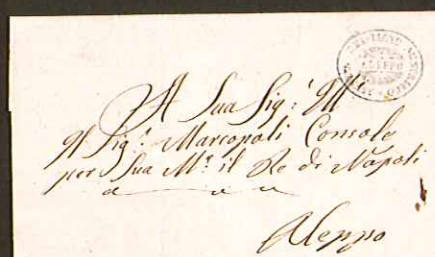 A Sua Sig:ª Ill
Il Sig.r Marcopoli Console
per Sua M.ª il Re di Napoli
Aleppo